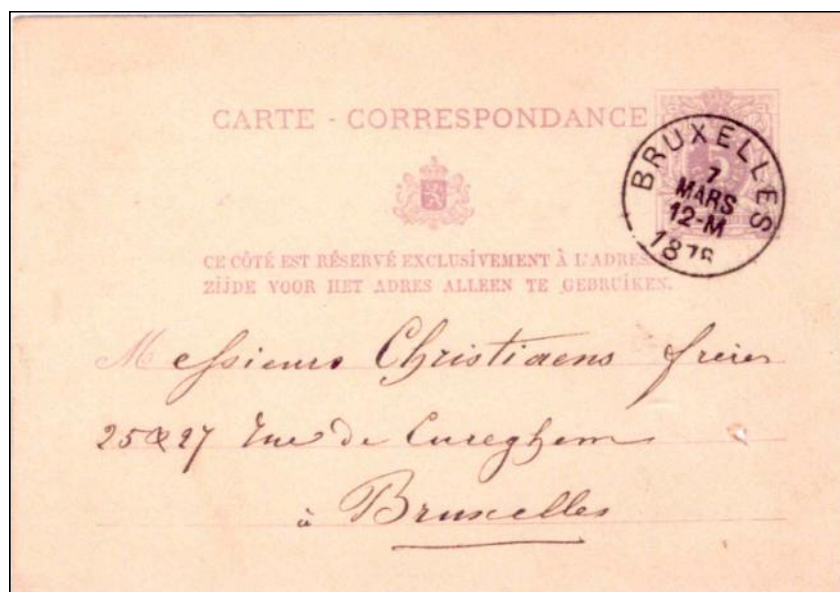 CARTE - CORRESPONDANCE
5
BRUXELLES
7
MARS
12-M
CE CÔTÉ EST RÉSERVÉ EXCLUSIVEMENT À L'ADRES
ZIJDE VOOR HET ADRES ALLEEN TE GEBRUIKEN.
Messieurs Christiaens frères
25 & 27 Rue de Cureghem
à Bruxelles